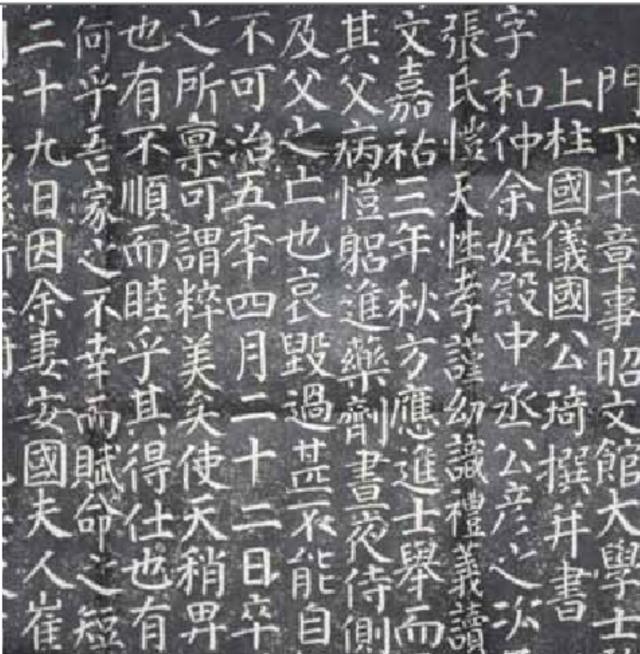 門下平章事昭文館大學士
上柱國儀國公琦撰并書
字和仲余姪殿中丞公彦之次
張氏愷天性孝謹幼識禮義讀
文嘉祐三年秋方應進士舉而
其父病愷躬進藥劑晝夜侍側
及父之亡也哀毀過甚不能自
不可治五年四月二十二日卒
之所稟可謂粹美矣使天稍畀
也有不順而睦乎其得仕也有
何乎吾家之不幸而賦命之短
二十九日因余妻安國夫人崔